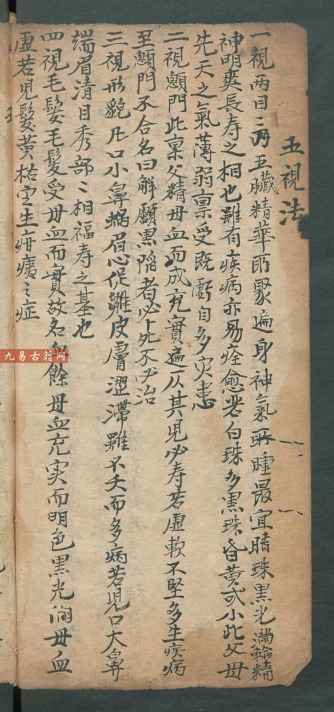 五視法
一視兩目二乃五臟精華所聚遍身神氣所鍾最宜睛珠黑光滿輪精
神明爽長寿之相也雖有疾病亦易痊愈若白珠多黑珠昏黄或小此父母
先天之氣薄弱禀受既虧自多灾患
二視顖門此禀父精母血而成充實
其児必寿若虚軟不堅多生疾病
至顖門不合名曰解顱黑陷者必死不必治
三視形貌凡口小鼻蝸眉心促皺皮膚澀滯雖不夭而多病若児口大鼻
端眉清目秀部〻相福寿之基也
四視毛髮毛髮受母血而貫故名血餘母血充实而明色黑光润母血
虚若児髮黄枯它生疳瘻〻症
九易古籍网